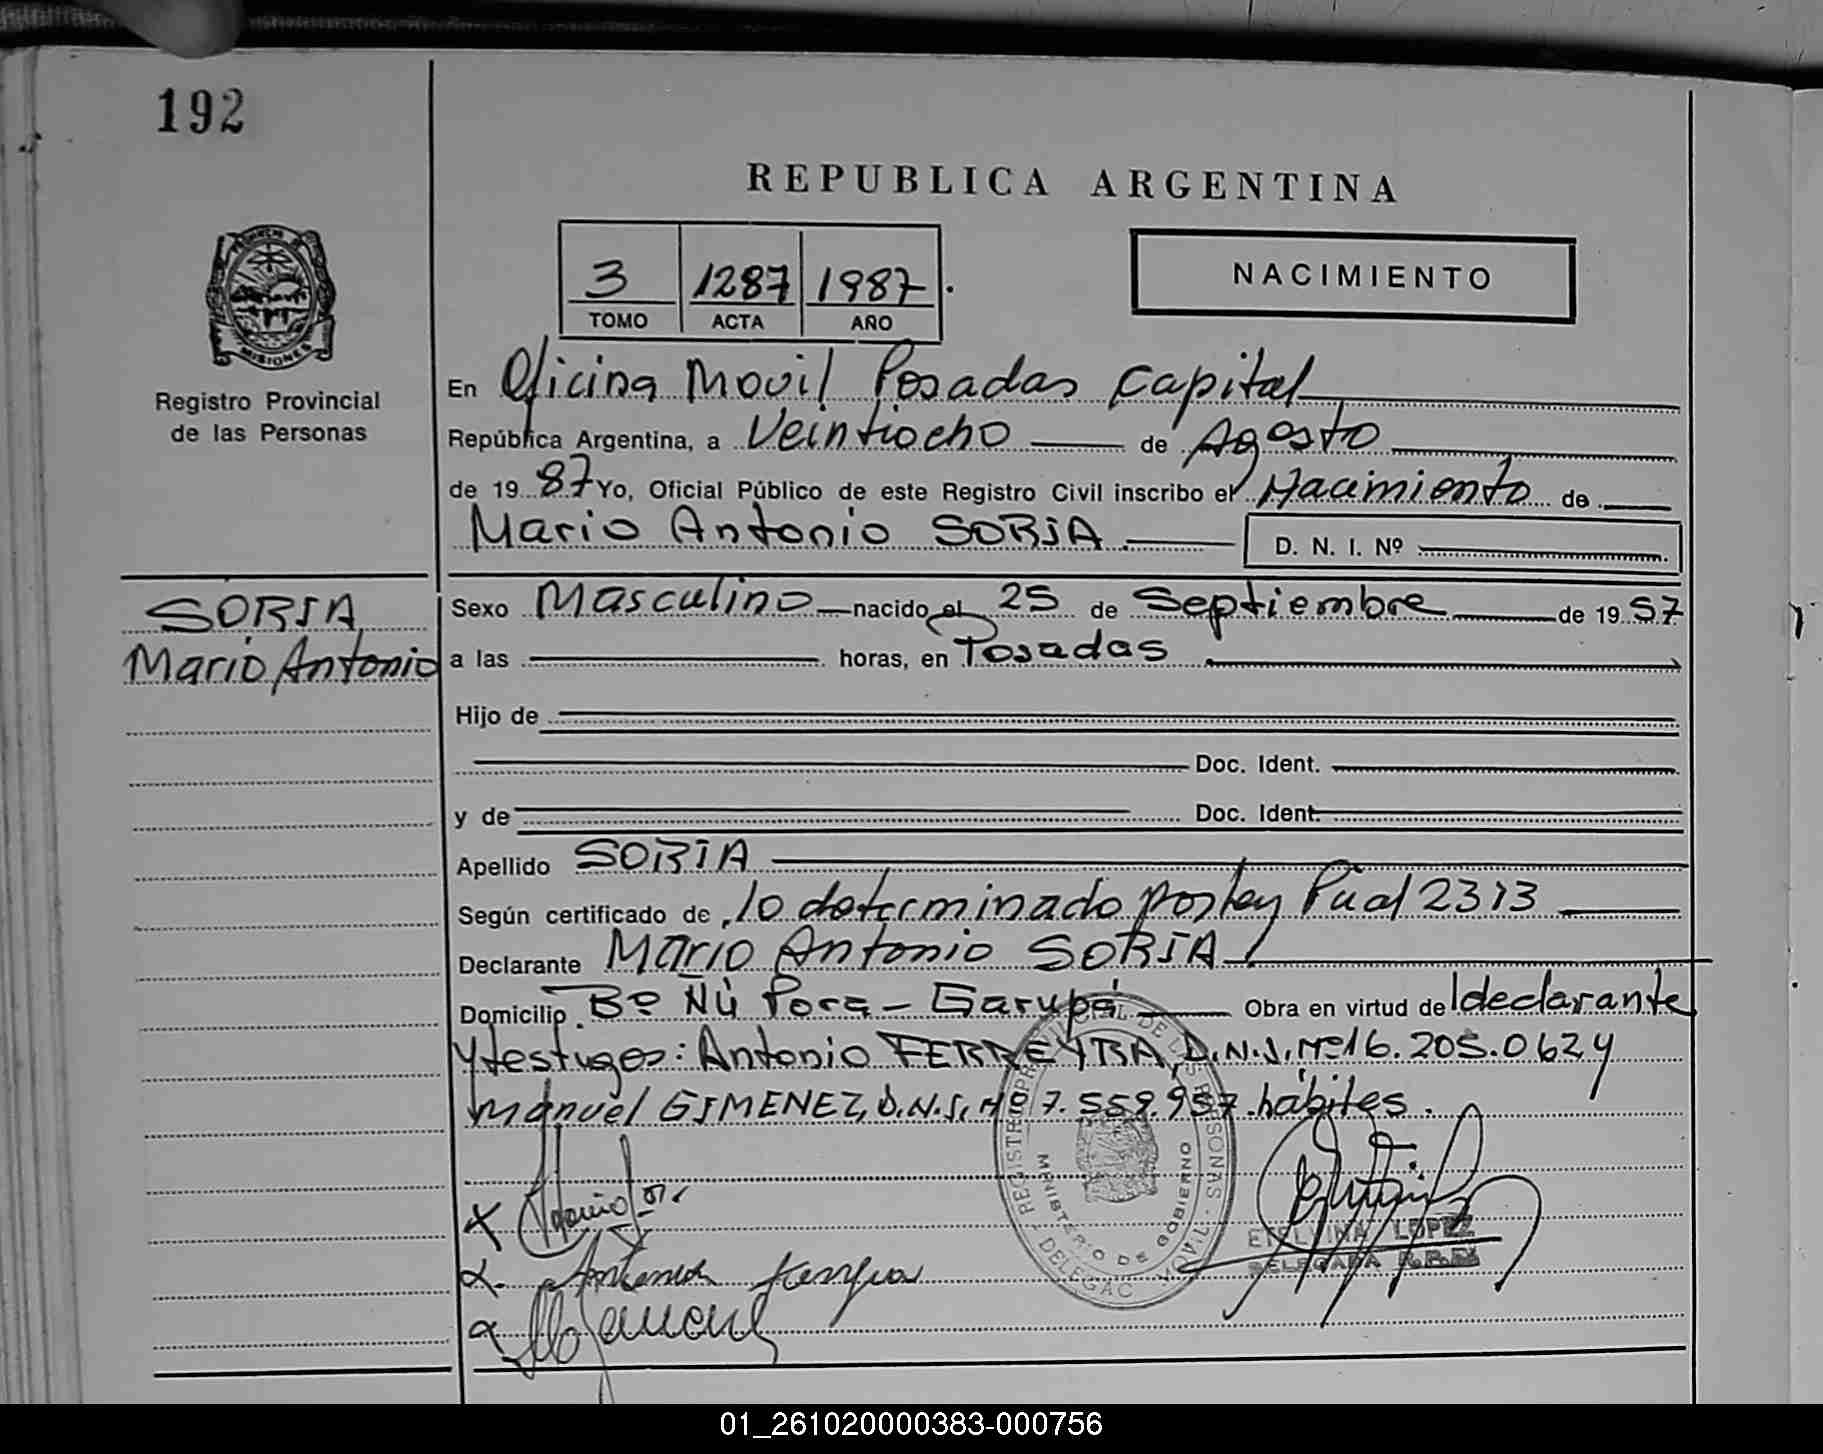 192
REPUBLICA ARGENTINA
3 1287 1987
TOMO ACTA AÑO
NACIMIENTO
MISIONES
Registro Provincial
de las Personas
En Oficina Movil Posadas Capital
República Argentina, a Veintiocho de Agosto
de 19 87 Yo, Oficial Público de este Registro Civil inscribo el Nacimiento de
Mario Antonio SORIA D. N. I. Nº
SORIA
Mario Antonio
Sexo Masculino nacido el 25 de Septiembre de 19 57
a las horas, en Posadas
Hijo de
Doc. Ident.
y de Doc. Ident.
Apellido SORIA
Según certificado de lo determinado por ley Pcial 2313
Declarante Mario Antonio SORIA
Domicilio Bº Ñú Pora - Garupá Obra en virtud de l declarante
y testigos: Antonio FERREYRA, D.N.I. Nº 16.205.062 y
Manuel GIMENEZ, D.N.I. Nº 7.559.957 hábiles.
REGISTRO PROVINCIAL DE LAS PERSONAS
MINISTERIO DE GOBIERNO
ETELVINA LOPEZ
DELEGADA R.P.P.
01_261020000383-000756